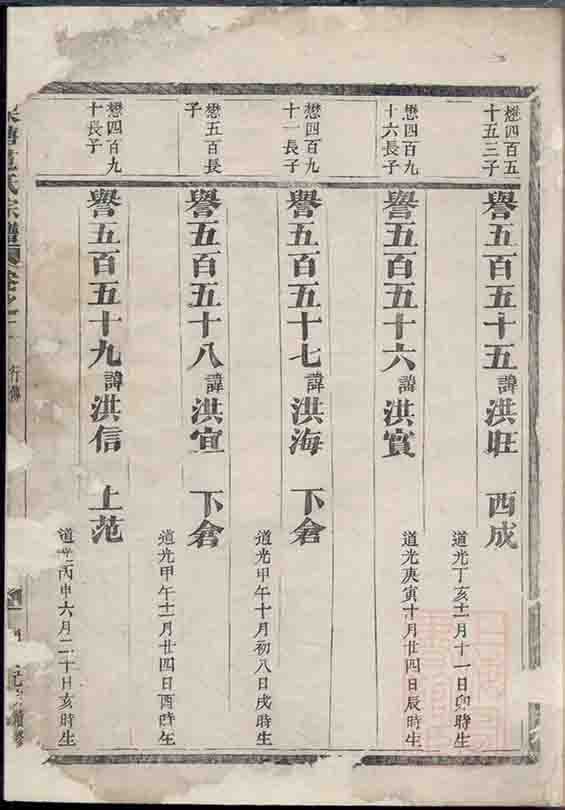 懋四百五
十五三子
譽五百五十五諱洪旺 西成
道光丁亥十二月十一日卯時生
懋四百九
十六長子
譽五百五十六諱洪實
道光庚寅十月廿四日辰時生
懋四百九
十一長子
譽五百五十七諱洪海 下倉
道光甲午十月初八日戌時生
懋五百長
子
譽五百五十八諱洪宣 下倉
道光甲午十二月廿四日酉時生
懋四百九
十長子
譽五百五十九諱洪信 上范
道光丙申六月二十日亥時生
氏宗譜 卷之 行傳